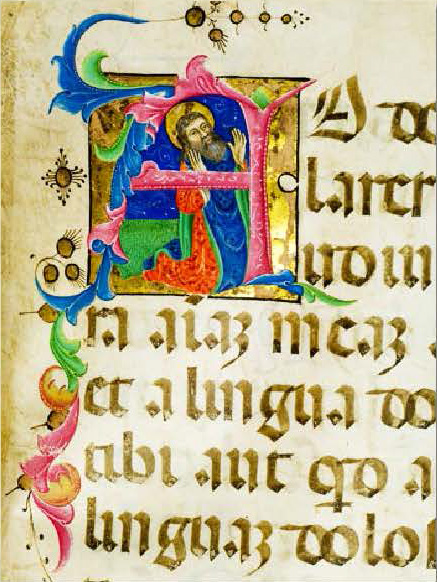 AD do
larer
udiui
ra aiaz meaz
et a lingua do
tibi aut qd a
linguaz dolo